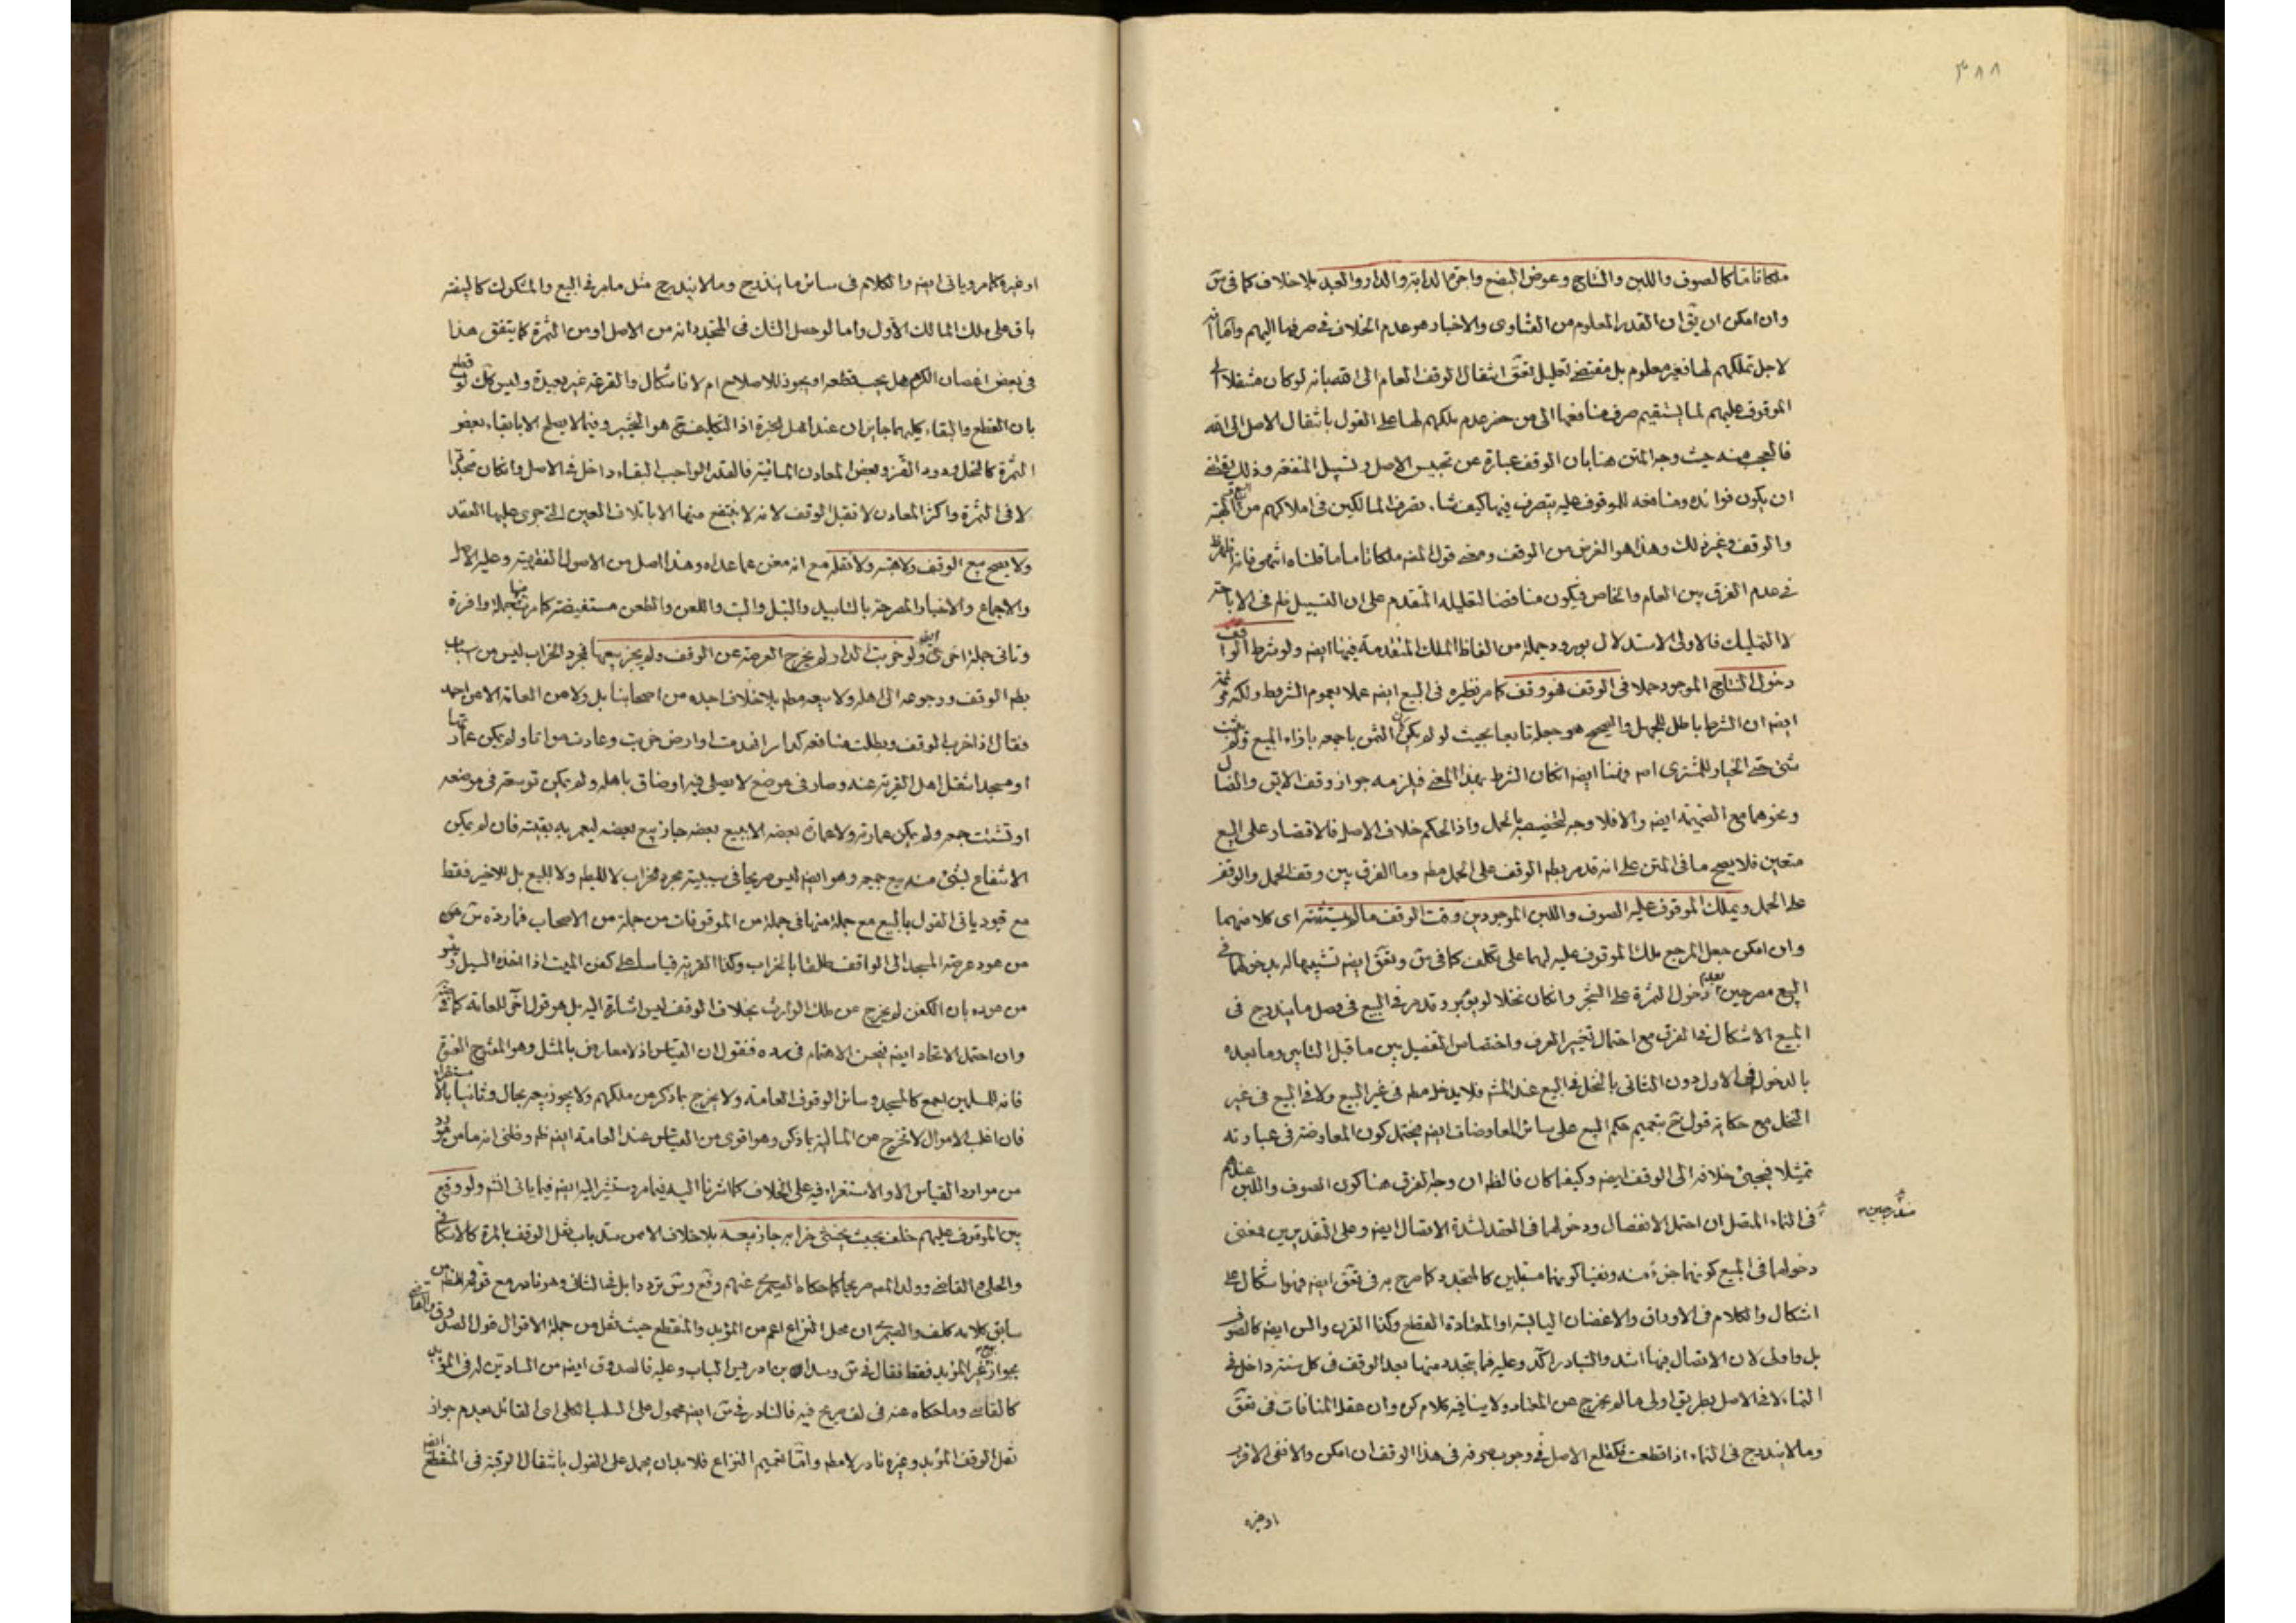 ٣٨٨
ملكا تاما كالصوف واللبن والنتاج وعوض البضع واجرة الدابة والدار والعبد بلا خلاف كما في
وان امكن ان يق ان القدر المعلوم من الفتاوى والاخبار هو عدم الخلاف في صرفها اليهم واما
لاجل تملكهم لها فغير معلوم بل مقتضى تعليل انتقال الوقف العام الى الله بانه لو كان منتقلا
الموقوف عليهم لما يستقيم صرف منافعها الى من حضر عدم ملكهم لها على القول بانتقال الاصل الى الله
فالعجب منه حيث وجه المتن هنا بان الوقف عبارة عن تحبيس الاصل وتسبيل المنفعة وذلك
ان يكون فوائده ومنافعه للموقوف عليه يتصرف فيها كيف شاء تصرف المالكين في املاكهم من البيع والهبة
والوقف وغير ذلك وهذا هو الغرض من الوقف ومعنى قول المص ملكا تاما ما قلناه انتهى فانه
في عدم الفرق بين العام والخاص فيكون مناقضا لتعليله المتقدم على ان التسبيل ظم في الاباحة
لا التمليك فالاولى الاستدلال بورود جملة من الفاظ الملك المتقدمة فيها ايضه ولو شرط الواقف
دخول النتاج الموجود حملا في الوقف فهو وقف كما مر نظيره في البيع ايضه عملا بعموم الشرط ولكنه
ايضه ان الشرط باطل للجهل والصحيح هو جعله تابعا بحيث لو لم يكن كان الثمن باجمعه بازاء المبيع ولم يثبت
شئ حتى الخيار للمشترى اه وهنا ايضه ان كان الشرط بهذا المعنى فيلزمه جواز وقف الابق والضال
ونحوهما مع الضميمة ايضه والا فلا وجه لتخصيصه بالحمل واذ الحكم خلاف الاصل فالاقتصار على البيع
متعين فلا يصح ما في المتن على انه قد مر بطم الوقف على الحمل مطم وما الفرق بين وقف الحمل والوقف
على الحمل ويملك الموقوف عليه الصوف واللبن الموجودين وقت الوقف ما لم يستثنه اى كلا منهما
وان امكن جعل المرجع ملك الموقوف عليه لهما على تكلف كما في
البيع مصرحين بعدم دخول الثمرة على الشجر وان كان نخلا لو يؤبر وقد مر في البيع في فصل ما يندرج في
المبيع الاشكال في الفرق مع احتمال تغيير العرف واختصاص التفصيل بين ما قبل التابير وما بعده
بالدخول في الاول دون الثاني بالنخل في البيع عند المشه فلا يدخل مطم في غير البيع ولا في البيع في غير
النخل مع حكاية قول بتعميم حكم البيع على سائر المعاوضات ايضه يحتمل كون المعاوضة في عبارته
تمثيلا فيجئ خلافه الى الوقف ايضه وكيف كان فالظم ان وجه الفرق هنا كون الصوف واللبن عندهم
في النماء المتصل ان احتمل الانفصال ودخولهما في العقد لشدة الاتصال ايضه وعلى التقديرين فمعنى
دخولهما في المبيع كونهما جزءا منه ونفيا كونهما مستقلين كالمتجدد كما صرح به في ايضه فهنا اشكال على
اشكال والكلام في الاوراق والاغصان اليابسة او المعتادة القطع وكذا القرن والسن ايضه كالصوف
بل واولى لان الاتصال فيها اشد والتبادر اكد وعليه فما يتجدد منها بعد الوقف في كل سنة داخل في
النماء لا في الاصل بطريق اولى ما لم يخرج عن المعتاد ولا ينافيه كلام وان عقد المنافات في
وما لا يندرج في النماء اذا قطعت فكقلع الاصل في وجوب صرفه في هذا الوقف ان امكن والا ففى الاقرب
او غيره
او غيره كما مر وياتى ايضه والكلام في سائر ما يندرج وما لا يندرج مثل ما مر في البيع والمشكوك كالبيضه
باق على ملك المالك الاول واما لو حصل الشك في المتجدد انه من الاصل او من الثمرة كما يتفق هذا
في بعض اغصان الكرم هل يجب قطعه او يجوز للاصلاح ام لا فاشكال والقرعة غير بعيدة وليس كك لو قطع
بان القطع والبقاء كليهما جايزان عند اهل الخبرة اذ التكليف هو التخيير وفيما لا يصلح الا بابقاء بعض
الثمرة كالنخل ودود القز وبعض المعادن المائية فالقدر الواجب البقاء داخل في الاصل وان كان متجددا
لا في الثمرة واكثر المعادن لا تقبل الوقف لانه لا ينتفع منها الا باتلاف العين التى جرى عليها العقد
ولا يصح بيع الوقف ولا هبته ولا نقله مع انه مغن عما عداه وهذا اصل من الاصول الفقهية وعليه الاصل
والاجماع والاخبار المصرحة بالتابيد والبتل والبت واللعن والطعن مستفيضة كما مر منها جملة وافرة
وتاتى جملة اخرى ايضه ولو خربت الدار لم يخرج العرصة عن الوقف ولم يجز بيعها فمجرد الخراب ليس من اسباب
بطم الوقف ورجوعه الى اهله ولا بيعه مطم بلا خلاف اجده من اصحابنا بل ولا من العامة الا من احمد
فقال اذا خرب الوقف وبطلت منافعه كدار انهدمت او ارض خربت وعادت مواتا ولم يمكن عمارتها
او مسجد انتقل اهل القرية عنه وصار في موضع لا يصلى فيه او ضاق باهله ولم يمكن توسعته في موضعه
او تشتت جمعه ولم يمكن عمارته ولا عمارة بعضه الا ببيع بعضه جاز بيع بعضه ليعمر به بقيته فان لم يمكن
الانتفاع بشئ منه بيع جميعه وهو ايضه ليس صريحا في سببية مجرد الخراب لا للبطم ولا للبيع بل للاخير فقط
مع قيود ياتى القول بالبيع مع جملة منها في جملة من الموقوفات من جملة من الاصحاب فما رده
من عود عرصة المسجد الى الواقف مطلقا بالخراب وكذا القرية قياسا على كفن الميت اذا اخذه السيل
من عوده بان الكفن لم يخرج عن ملك الوارث بخلاف الوقف ليس اشارة اليه بل هو قول اخر للعامة كما في
وان احتمل الاتحاد ايضه فيحسن الاهتمام في رده فنقول ان القياس اذ لا معارض بالمثل وهو المفتوح العنوة
فانه للمسلمين اجمع كالمسجد وسائر الوقوف العامة ولا يخرج بما ذكر عن ملكهم ولا يجوز بيعه بحال وثانيا بالاستقراء
فان اغلب الاموال لا تخرج عن المالية بما ذكر وهو اقوى من القياس عند العامة ايضه ظم وظنى انه ما من مورد
من موارد القياس الا والاستقراء فيه على الخلاف كما اشرنا اليه فيما مر وستشير اليه ايضه فيما ياتى انشم ولو وقع
بين الموقوف عليهم خلف بحيث يخشى خرابه جاز بيعه بلا خلاف الا ممن سد باب نقل الوقف بالمرة كالاسكافى
والحلى والقاضى وولد المص صريحا كما حكاه الصيمرى عنهم
سابق كلامه كلف والصيمرى ان محل النزاع اعم من المؤبد والمنقطع حيث نقل من جملة الاقوال قول الصدوق والقاضى
بجواز بيع غير المؤبد فقط فقال في وسد ابن ادريس الباب وعليه فالصدوق ايضه من السادين له في المؤبد
كالقاضى وما حكاه عنه في لف صريح فيه فالنادر في ايضه محمول على السلب الكلى اى القائل بعدم جواز
نقل الوقف المؤبد وغيره نادر لا مطم واما تعميم النزاع فلا بد ان يحمل على القول بانتقال الرقبة في المنقطع ايضه